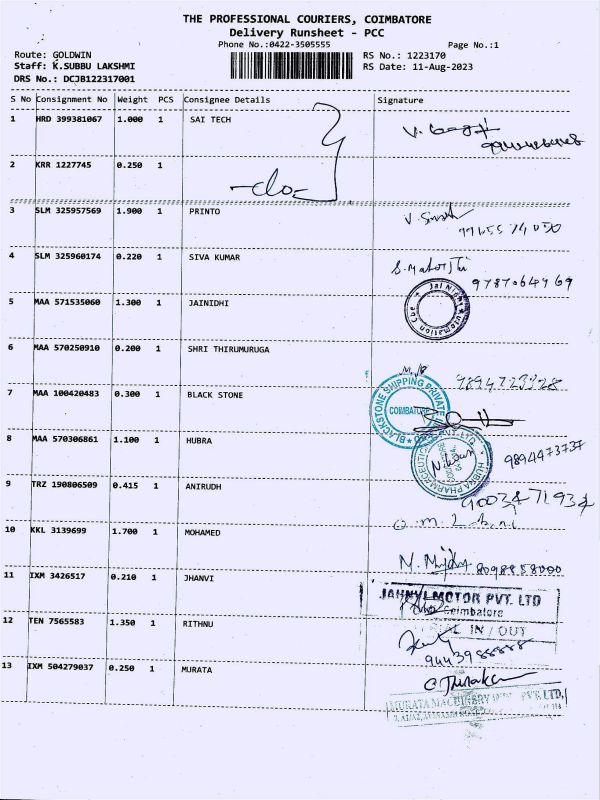 THE PROFESSIONAL COURIERS, COIMBATORE
Delivery Runsheet - PCC
Phone No.:0422-3505555 Page No.:1
Route: GOLDWIN RS No.: 1223170
Staff: K.SUBBU LAKSHMI RS Date: 11-Aug-2023
DRS No.: DCJB122317001
S No Consignment No Weight PCS Consignee Details Signature
1 HRD 399381067 1.000 1 SAI TECH
2 KRR 1227745 0.250 1
-do-
3 SLM 325957569 1.900 1 PRINTO
4 SLM 325960174 0.220 1 SIVA KUMAR
9787064969
5 MAA 571535060 1.300 1 JAINIDHI
6 MAA 570250910 0.200 1 SHRI THIRUMURUGA
7 MAA 100420483 0.300 1 BLACK STONE
BLACKSTONE SHIPPING PRIVATE
COIMBATORE
8 MAA 570306861 1.100 1 HUBRA
HUBRA PHARMACEUTIC PVT.LTD.
9894473737
9 TRZ 190806509 0.415 1 ANIRUDH
9003471934
10 KKL 3139699 1.700 1 MOHAMED
11 IXM 3426517 0.210 1 JHANVI
8098858000
JAHNVI MOTOR PVT. LTD
Coimbatore
IN / OUT
12 TEN 7565583 1.350 1 RITHNU
9443988888
13 IXM 504279037 0.250 1 MURATA
MURATA MACHINERY PVT. LTD,